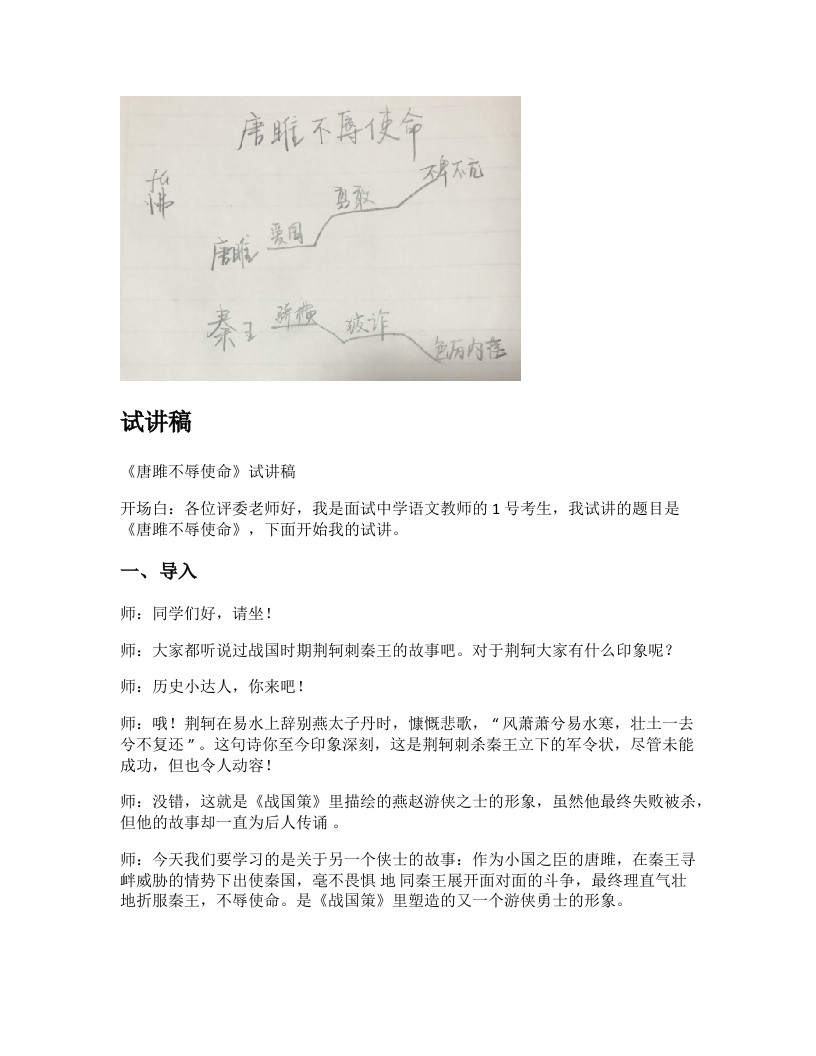 唐雎不辱使命
fú
怫
唐雎 爱国 勇敢 不卑不亢
秦王 骄横 狡诈 色厉内荏
试讲稿
《唐雎不辱使命》试讲稿
开场白：各位评委老师好，我是面试中学语文教师的 1 号考生，我试讲的题目是
《唐雎不辱使命》，下面开始我的试讲。
一、导入
师：同学们好，请坐！
师：大家都听说过战国时期荆轲刺秦王的故事吧。对于荆轲大家有什么印象呢？
师：历史小达人，你来吧！
师：哦！荆轲在易水上辞别燕太子丹时，慷慨悲歌，“ 风萧萧兮易水寒，壮土一去
兮不复还 ” 。这句诗你至今印象深刻，这是荆轲刺杀秦王立下的军令状，尽管未能
成功，但也令人动容！
师：没错，这就是《战国策》里描绘的燕赵游侠之士的形象，虽然他最终失败被杀，
但他的故事却一直为后人传诵 。
师：今天我们要学习的是关于另一个侠士的故事：作为小国之臣的唐雎，在秦王寻
衅威胁的情势下出使秦国，毫不畏惧 地 同秦王展开面对面的斗争，最终理直气壮
地折服秦王，不辱使命。是《战国策》里塑造的又一个游侠勇士的形象。